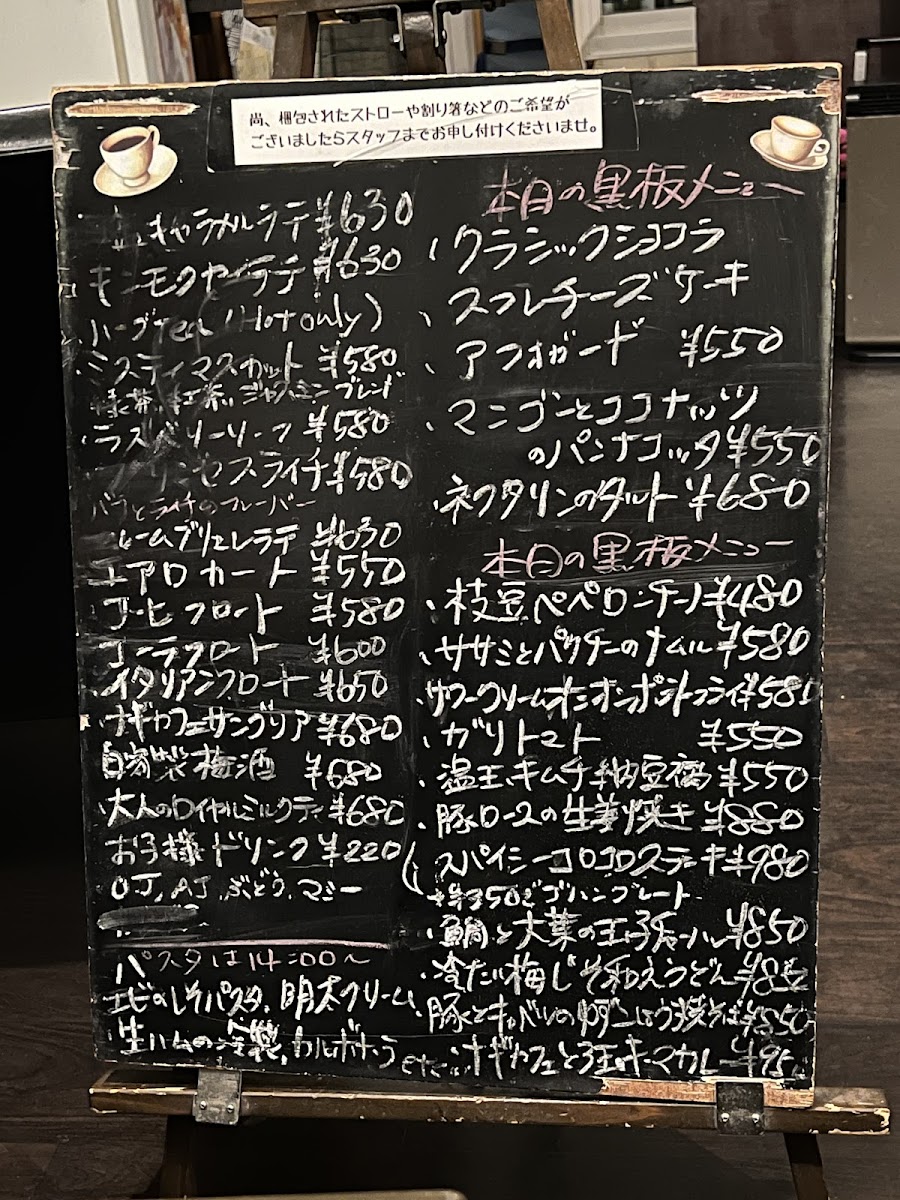 尚、梱包されたストローや割り箸などのご希望が
ございましたらスタッフまでお申し付けくださいませ。
キャラメルラテ ¥630
キンモクセイラテ ¥630
ハーブtea (Hot only)
ミスティマスカット ¥580
緑茶、紅茶、ジャスミンブレンド
・ラズベリーリーフ ¥580
プリンセスライチ ¥580
バラとライチのフレーバー
ームブリュレラテ ¥630
エアロカート ¥550
コーヒーフロート ¥580
コーラフロート ¥600
イタリアンフロート ¥650
ナギカフェサングリア ¥680
自家製梅酒 ¥680
大人のロイヤルミルクティ ¥680
お子様ドリンク ¥220
OJ、AJ、ぶどう、マンゴー
パスタは14:00〜
エビのしそパスタ、明太クリーム、
生ハムの、カルボナーラ etc…
本日の黒板メニュー
、クラシックショコラ
、スフレチーズケーキ
、アフォガード ¥550
、マンゴーとココナッツ
のパンナコッタ ¥550
・ネクタリンのタルト ¥680
本日の黒板メニュー
・枝豆ペペロンチーノ ¥480
、ササミとパクチーのナムル ¥580
・サワークリームオニオンポテトフライ ¥580
・ガリトマト ¥550
・温玉キムチ納豆腐 ¥550
・豚ロースの生姜焼き ¥880
スパイシーコロコロステーキ ¥980
+¥350でゴハンプレート
・鯛と大葉の玉子チャーハン ¥850
・冷たい梅しそ和えうどん ¥85
・豚とキャベツのゆずこしょう焼そば ¥850
・ナギカフェとろ玉キーマカレー ¥95